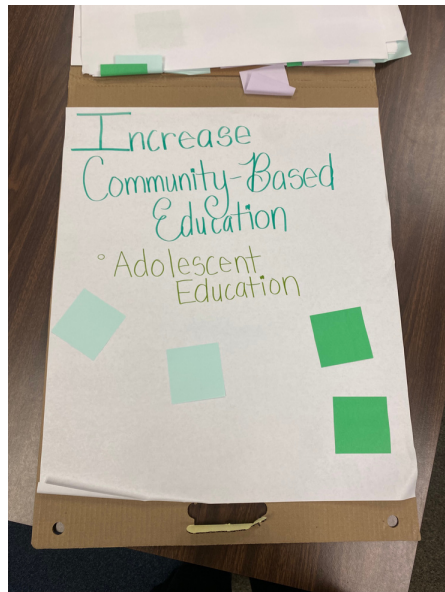 Increase
Community-Based
Education
° Adolescent
Education